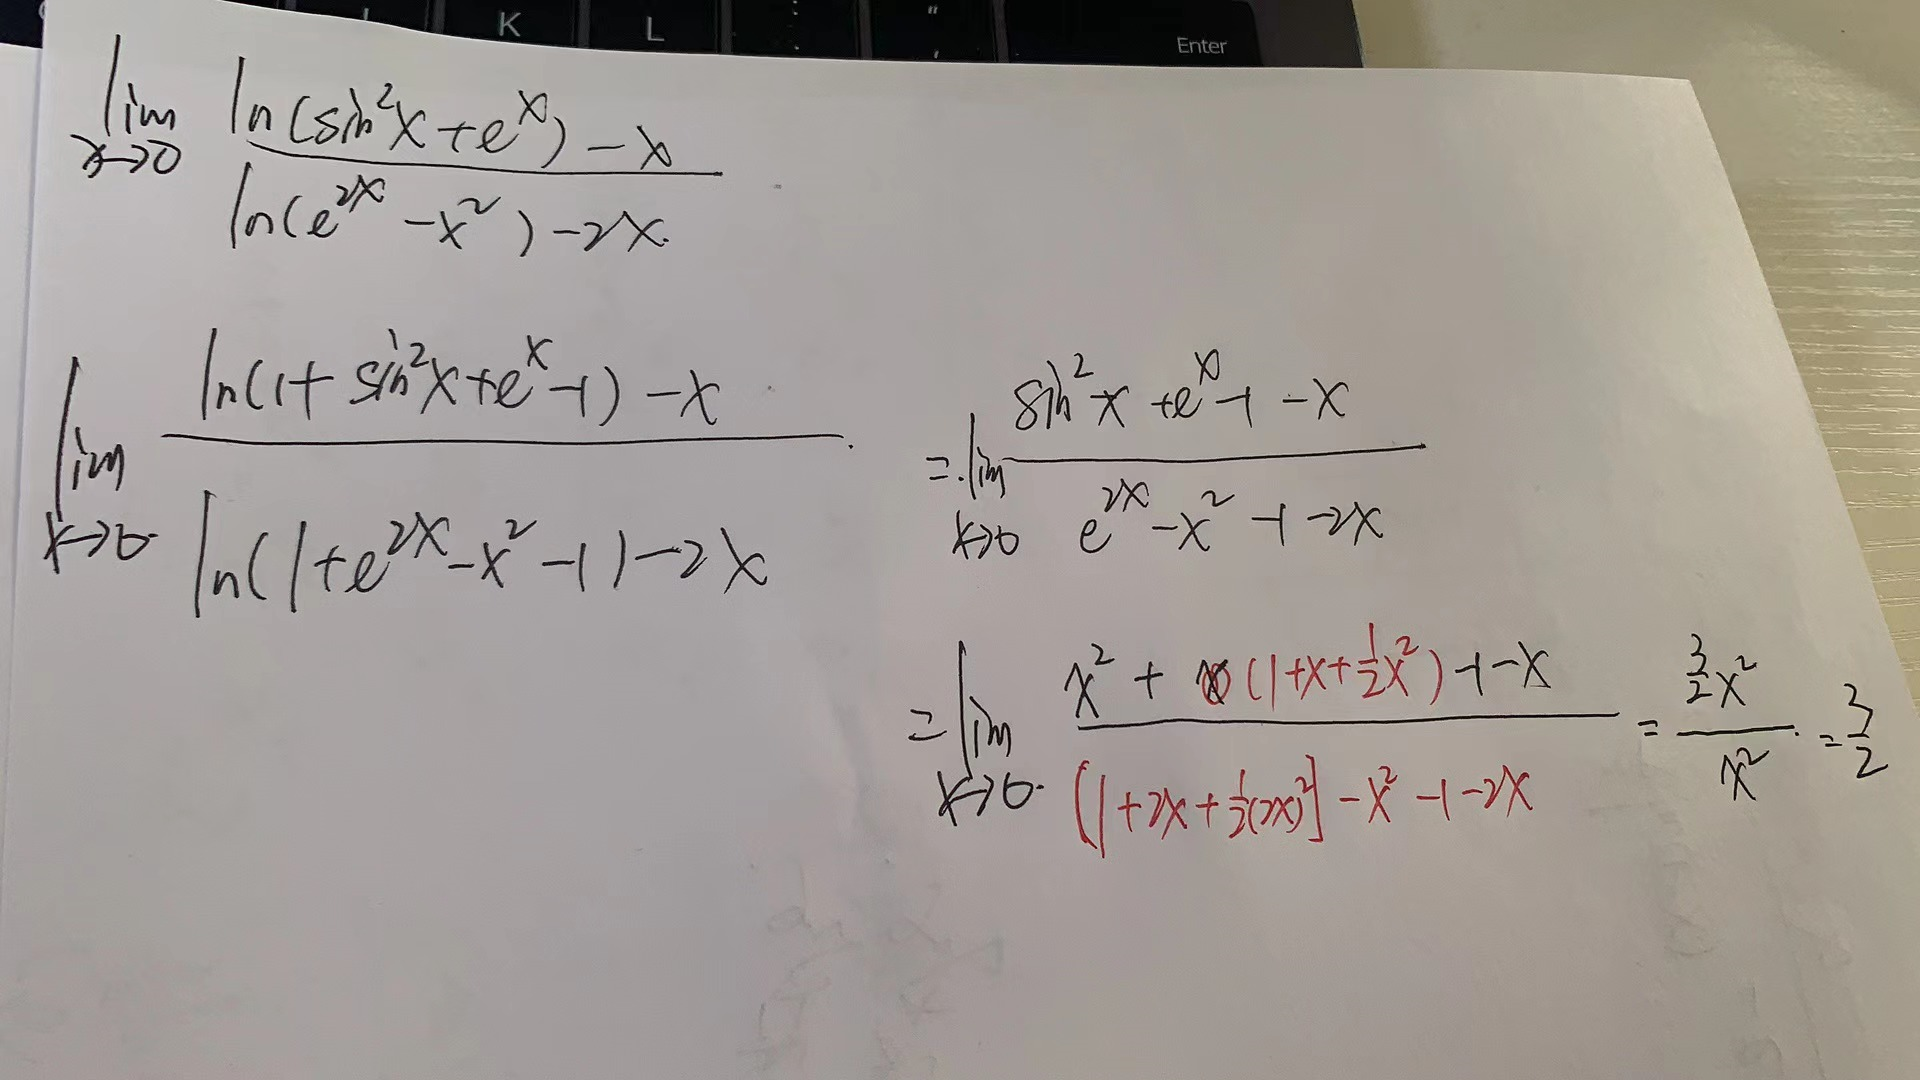 K L : " ' Enter
lim x→0 ln(sin²x+eˣ)-x / ln(e²ˣ-x²)-2x
lim x→0 ln(1+sin²x+eˣ-1)-x / ln(1+e²ˣ-x²-1)-2x
=lim x→0 sin²x+eˣ-1-x / e²ˣ-x²-1-2x
=lim x→0 x²+(1+x+1/2x²)-1-x / [1+2x+1/2(2x)²]-x²-1-2x = 3/2x² / x² = 3/2